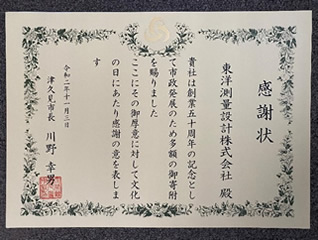 感謝状
東洋測量設計株式会社 殿
貴社は創業五十周年の記念とし
て市政発展のため多額の御寄附
を賜りました
ここにその御厚意に対して文化
の日にあたり感謝の意を表しま
す
令和二年十一月三日
津久見市長 川野 幸男